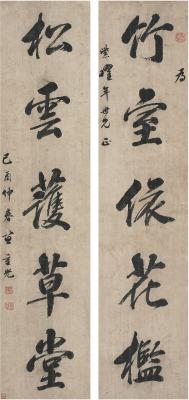 為
竹室依花檻
紫曜年世兄正
松雲護草堂
己酉仲春笪重光